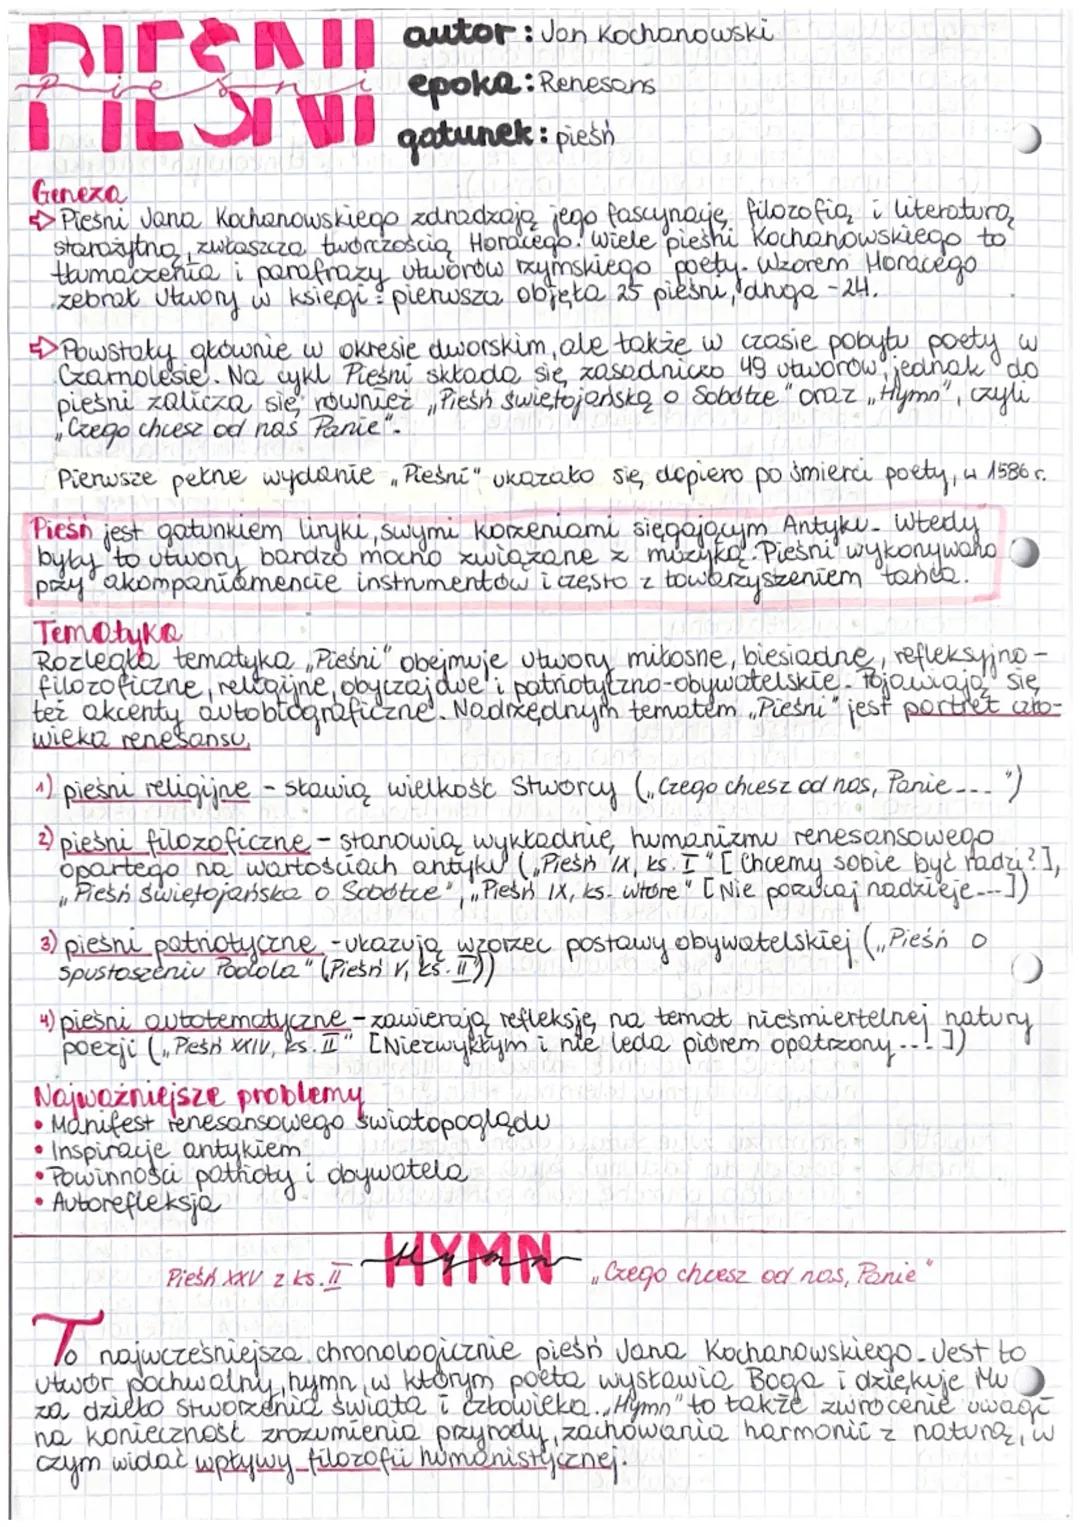 PIEŚNI
Pieśni
autor: Jan Kochanowski
epoka: Renesans
gatunek: pieśń
Geneza
⇨ Pieśni Jana Kochanowskiego zdradzają jego fascynację filozofią i literaturą
starożytną, zwłaszcza twórczością Horacego. Wiele pieśni Kochanowskiego to
tłumaczenia i parafrazy utworów rzymskiego poety. Wzorem Horacego
zebrał utwory w księgi: pierwsza objęła 25 pieśni, druga - 24.
⇨ Powstały głównie w okresie dworskim, ale także w czasie pobytu poety w
Czarnolesie. Na cykl Pieśni składa się zasadniczo 49 utworów, jednak do
pieśni zalicza się również „Pieśń świętojańską o Sobótce" oraz „Hymn", czyli
„Czego chcesz od nas Panie".
Pierwsze pełne wydanie „Pieśni" ukazało się dopiero po śmierci poety, w 1586 r.
Pieśń jest gatunkiem liryki, swymi korzeniami sięgającym Antyku. Wtedy
były to utwory bardzo mocno związane z muzyką. Pieśni wykonywano
przy akompaniamencie instrumentów i często z towarzyszeniem tańca.
Tematyka
Rozległa tematyka „Pieśni" obejmuje utwory miłosne, biesiadne, refleksyjno-
filozoficzne, religijne, obyczajowe i patriotyczno-obywatelskie. Pojawiają się
też akcenty autobiograficzne. Nadrzędnym tematem „Pieśni" jest portret czło-
wieka renesansu.
1) pieśni religijne - sławią wielkość Stwórcy („Czego chcesz od nas, Panie...")
2) pieśni filozoficzne - stanowią wykładnię humanizmu renesansowego
opartego na wartościach antyku („Pieśń IX, ks. I" [Chcemy sobie być radzi?],
„Pieśń Świętojańska o Sobótce", „Pieśń IX, ks. wtóre" [Nie porzucaj nadzieje...])
3) pieśni patriotyczne - ukazują wzorzec postawy obywatelskiej („Pieśń o
spustoszeniu Podola" (Pieśń V, ks. II))
4) pieśni autotematyczne - zawierają refleksję na temat nieśmiertelnej natury
poezji („Pieśń XXIV, ks. II" [Niezwykłym i nie leda piórem opatrzony...])
Najważniejsze problemy
• Manifest renesansowego światopoglądu
• Inspiracje antykiem
• Powinności patrioty i obywatela
• Autorefleksja
HYMN
Hymn
Pieśń XXV z ks. II
„Czego chcesz od nas, Panie"
To najwcześniejsza chronologicznie pieśń Jana Kochanowskiego. Jest to
utwór pochwalny, hymn, w którym poeta wysławia Boga i dziękuje Mu
za dzieło stworzenia świata i człowieka. „Hymn" to także zwrócenie uwagi
na konieczność zrozumienia przyrody, zachowania harmonii z naturą, w
czym widać wpływy filozofii humanistycznej.